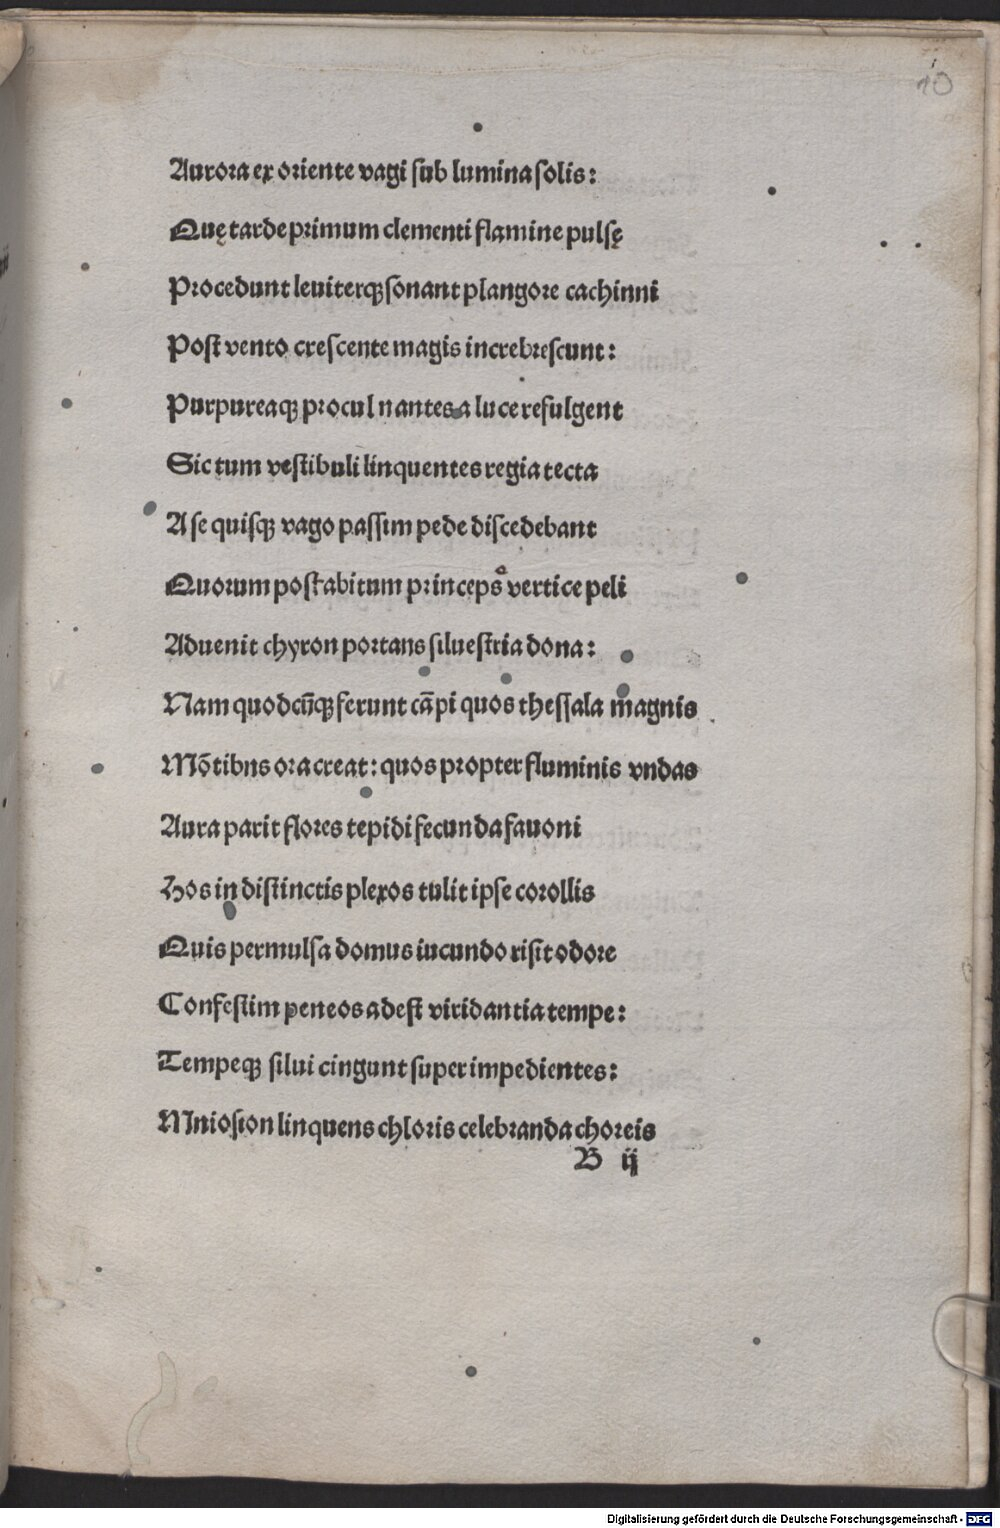 10
Aurora ex oriente vagi ſub lumina ſolis:
Quę tarde primum clementi flamine pulſę
Procedunt leuiterqꝫ ſonant plangore cachinni
Poſt vento creſcente magis increbreſcunt:
Purpureaqꝫ procul nantes a luce refulgent
Sic tum veſtibuli linquentes regia tecta
A ſe quiſqꝫ vago paſſim pede diſcedebant
Quorum poſt abitum princeps e vertice peli
Aduenit chyron portans ſilueſtria dona:
Nam quodcūqꝫ ferunt cāpi quos theſſala magnis
Mōtibns ora creat: quos propter fluminis vndas
Aura parit flores tepidi fecunda fauoni
Hos in diſtinctis plexos tulit ipſe corollis
Quis permulſa domus iucundo riſit odore
Confeſtim peneos adeſt viridantia tempe:
Tempeqꝫ ſilui cingunt ſuper impedientes:
Mnioſton linquens chloris celebranda choreis
B ij
Digitalisierung gefördert durch die Deutsche Forschungsgemeinschaft - DFG